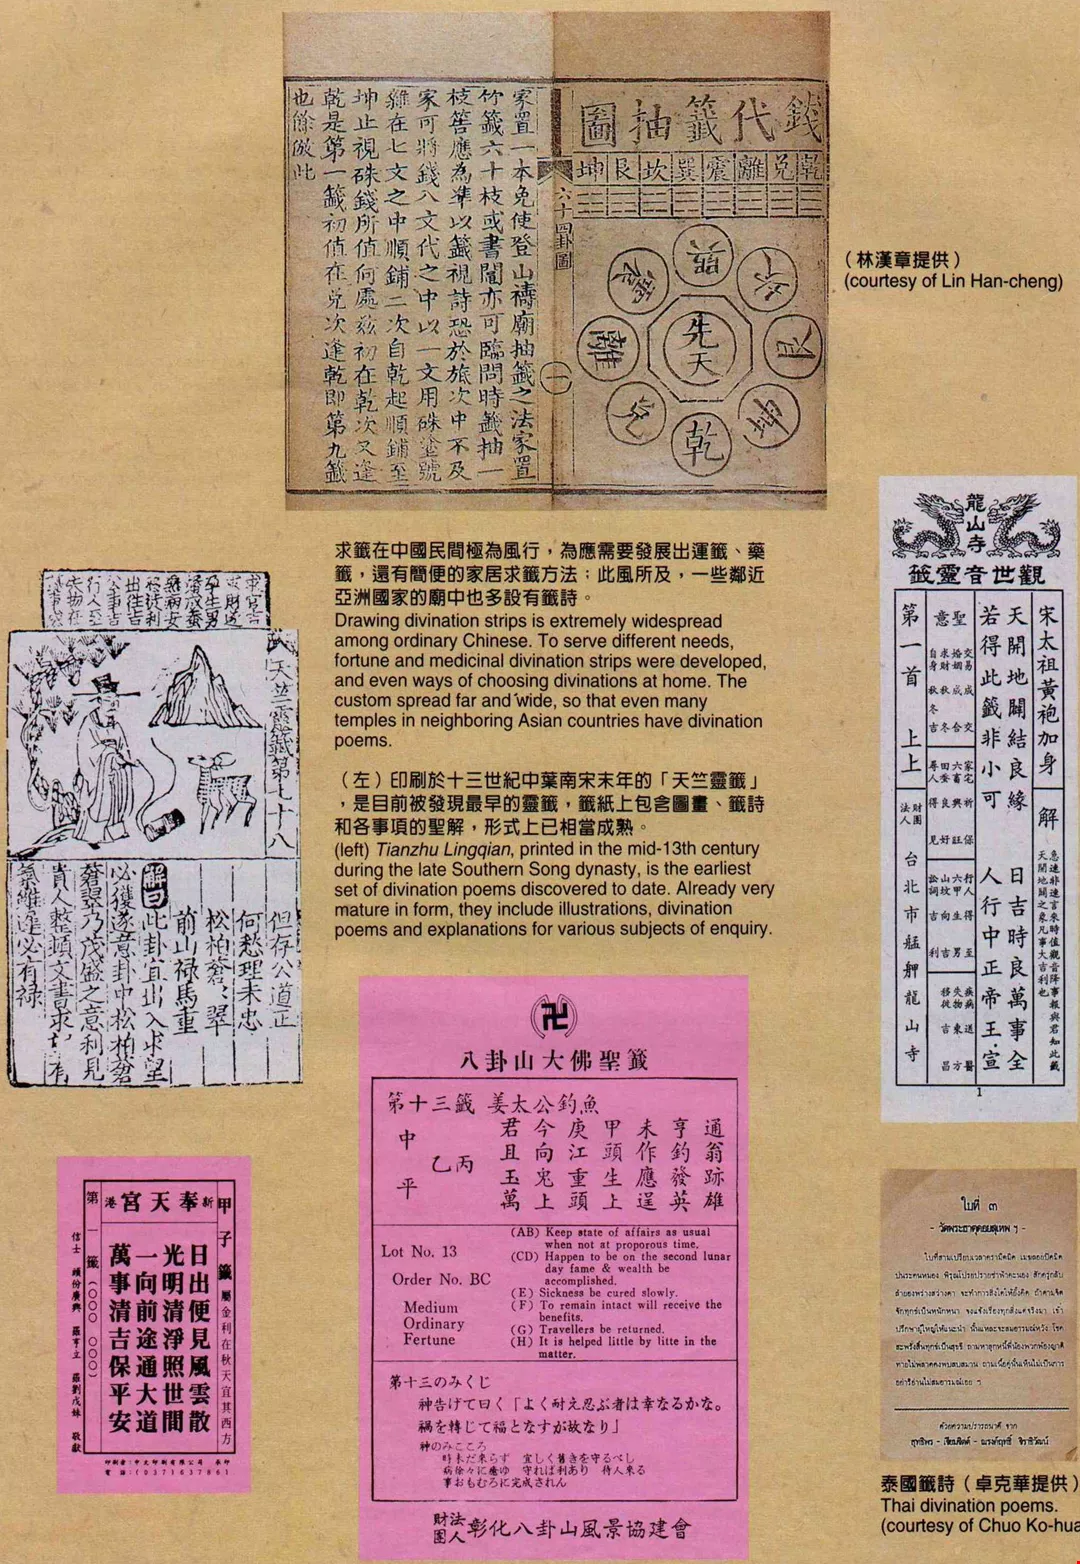 錢代籤抽圖
乾兌離震巽坎艮坤
先天
乾
兌
離
震
巽
坎
艮
坤
六十四卦圖
一
家置一本免使登山禱廟抽籤之法家置
竹籤六十枝或書閣亦可臨問時籤抽一
枝筶應為準以籤視詩恐於旅次中不及
家可將錢八文代之中以一文用硃塗號
雜在七文之中順鋪二次自乾起順鋪至
坤止視硃錢所值何處茲初在乾次又逢
乾是第一籤初值在兌次逢乾即第九籤
也餘倣此
（林漢章提供）
(courtesy of Lin Han-cheng)
求籤在中國民間極為風行，為應需要發展出運籤、藥
籤，還有簡便的家居求籤方法；此風所及，一些鄰近
亞洲國家的廟中也多設有籤詩。
Drawing divination strips is extremely widespread
among ordinary Chinese. To serve different needs,
fortune and medicinal divination strips were developed,
and even ways of choosing divinations at home. The
custom spread far and wide, so that even many
temples in neighboring Asian countries have divination
poems.
（左）印刷於十三世紀中葉南宋末年的「天竺靈籤」
，是目前被發現最早的靈籤，籤紙上包含圖畫、籤詩
和各事項的聖解，形式上已相當成熟。
(left) Tianzhu Lingqian, printed in the mid-13th century
during the late Southern Song dynasty, is the earliest
set of divination poems discovered to date. Already very
mature in form, they include illustrations, divination
poems and explanations for various subjects of enquiry.
天竺靈籤第七十八
但存公道正
何愁理未忠
松柏蒼々翠
前山祿馬重
解曰
此卦宜出入求望
必獲遂意卦中松柏蒼
蒼翠乃茂盛之意利見
貴人整頓文書求
祿
龍山寺
觀世音靈籤
第一首 上上
宋太祖黃袍加身
天開地闢結良緣 日吉時良萬事全
若得此籤非小可 人行中正帝王宣
聖意
交易成 婚姻成合 求財秋冬 自身秋冬吉
家宅祈保 六畜興旺 田蚕良好 尋人得見
行人至 六甲生男 山坟向吉 訟詞吉利
疾病送醫 失物東方 移徙吉昌
解
急速非速言來時值觀音降事報與君知此籤
天開地闢之象凡事大吉利也
財團法人 台北市艋舺龍山寺
1
卍
八卦山大佛聖籤
第十三籤 姜太公釣魚
中平
乙丙
通翁跡雄
亨釣發英
未作應逞
甲頭生上
庚江重頭
今向鬼上
君且玉萬
Lot No. 13
Order No. BC
Medium
Ordinary
Fertune
(AB) Keep state of affairs as usual
when not at proporous time.
(CD) Happen to be on the second lunar
day fame & wealth be
accomplished.
(E) Sickness be cured slowly.
(F) To remain intact will receive the
benefits.
(G) Travellers be returned.
(H) It is helped little by litte in the
matter.
第十三のみくじ
神告げて曰く「よく耐え忍ぶ者は幸なるかな。
禍を轉じて福となすが故なり」
神のみこころ
時未だ来らず 宜しく舊きを守るべし
病徐々に癒ゆ 守れば利あり 待人来る
事おもむろに完成されん
財團法人彰化八卦山風景協建會
新港奉天宮
甲子籤 屬金利在秋天宜其西方
第一籤
日出便見風雲散
光明清淨照世間
一向前途通大道
萬事清吉保平安
ใบที่ ๓
- วัดพระธาตุดอยสุเทพ ฯ -
ด้วยความปรารถนาดี จาก
泰國籤詩（卓克華提供）
Thai divination poems.
(courtesy of Chuo Ko-hua